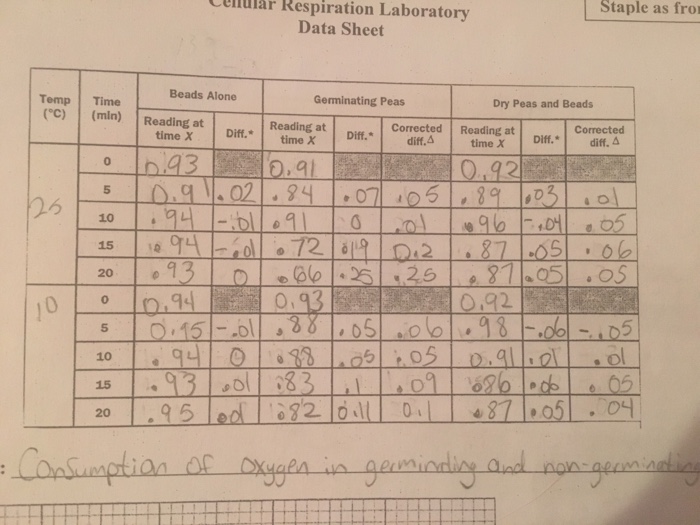 Cellular Respiration Laboratory
Staple as fro
Data Sheet
Temp (°C) Time (min) Beads Alone Germinating Peas Dry Peas and Beads
Reading at time X Diff.* Reading at time X Diff.* Corrected diff.Δ Reading at time X Diff.* Corrected diff. Δ
25
0 0.93 0.91 0.92
5 0.91 .02 .84 .07 .05 .89 .03 .01
10 .94 -.01 .91 0 .01 .96 -.04 .05
15 .94 -.01 .72 .19 0.2 .87 .05 .06
20 .93 0 .66 .25 .25 .87 .05 .05
10
0 0.94 0.93 0.92
5 0.95 -.01 .88 .05 .06 .98 -.06 -.05
10 .94 0 .88 .05 .05 0.91 .01 .01
15 .93 .01 .83 .1 .09 .86 .06 .05
20 .95 .82 0.11 0.1 .87 .05 .04
: Consumption of oxygen in germinating and non-germinating